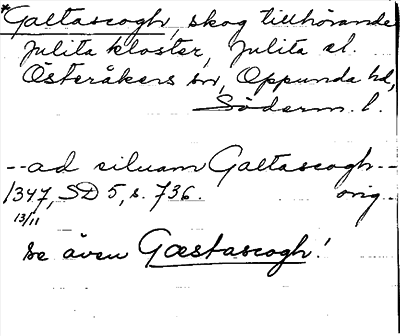 *Galtascogh, skog tillhörande
Julita kloster, Julita el.
Österåkers sn, Oppunda hd,
Söderm. l.
--ad siluam Galtascogh--
1347, SD 5, s. 736. orig.
13/11
se även Gæstascogh!